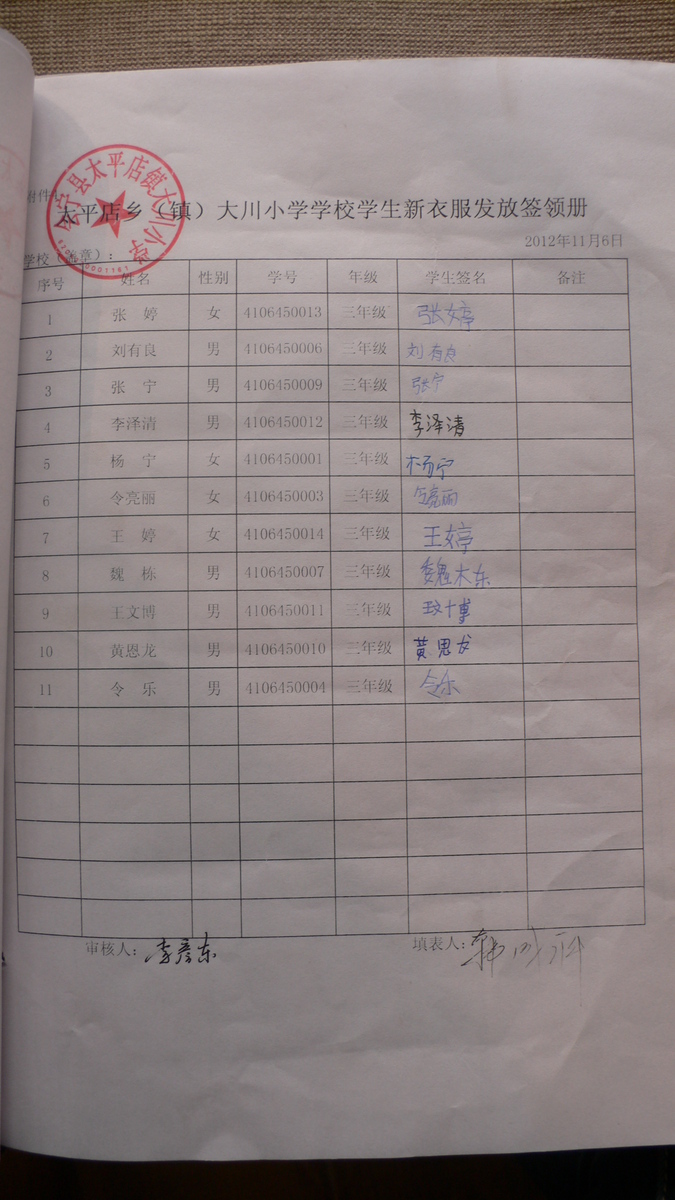 附件
太平店乡（镇）大川小学学校学生新衣服发放签领册
宁县太平店镇大川小学
2012年11月6日
学校（盖章）：
序号 姓名 性别 学号 年级 学生签名 备注
1 张 婷 女 4106450013 三年级 张婷
2 刘有良 男 4106450006 三年级 刘有良
3 张 宁 男 4106450009 三年级 张宁
4 李泽清 男 4106450012 三年级 李泽清
5 杨 宁 女 4106450001 三年级 杨宁
6 令亮丽 女 4106450003 三年级 令亮丽
7 王 婷 女 4106450014 三年级 王婷
8 魏 栋 男 4106450007 三年级 魏栋
9 王文博 男 4106450011 三年级 王文博
10 黄恩龙 男 4106450010 三年级 黄恩龙
11 令 乐 男 4106450004 三年级 令乐
审核人：李彦东 填表人：